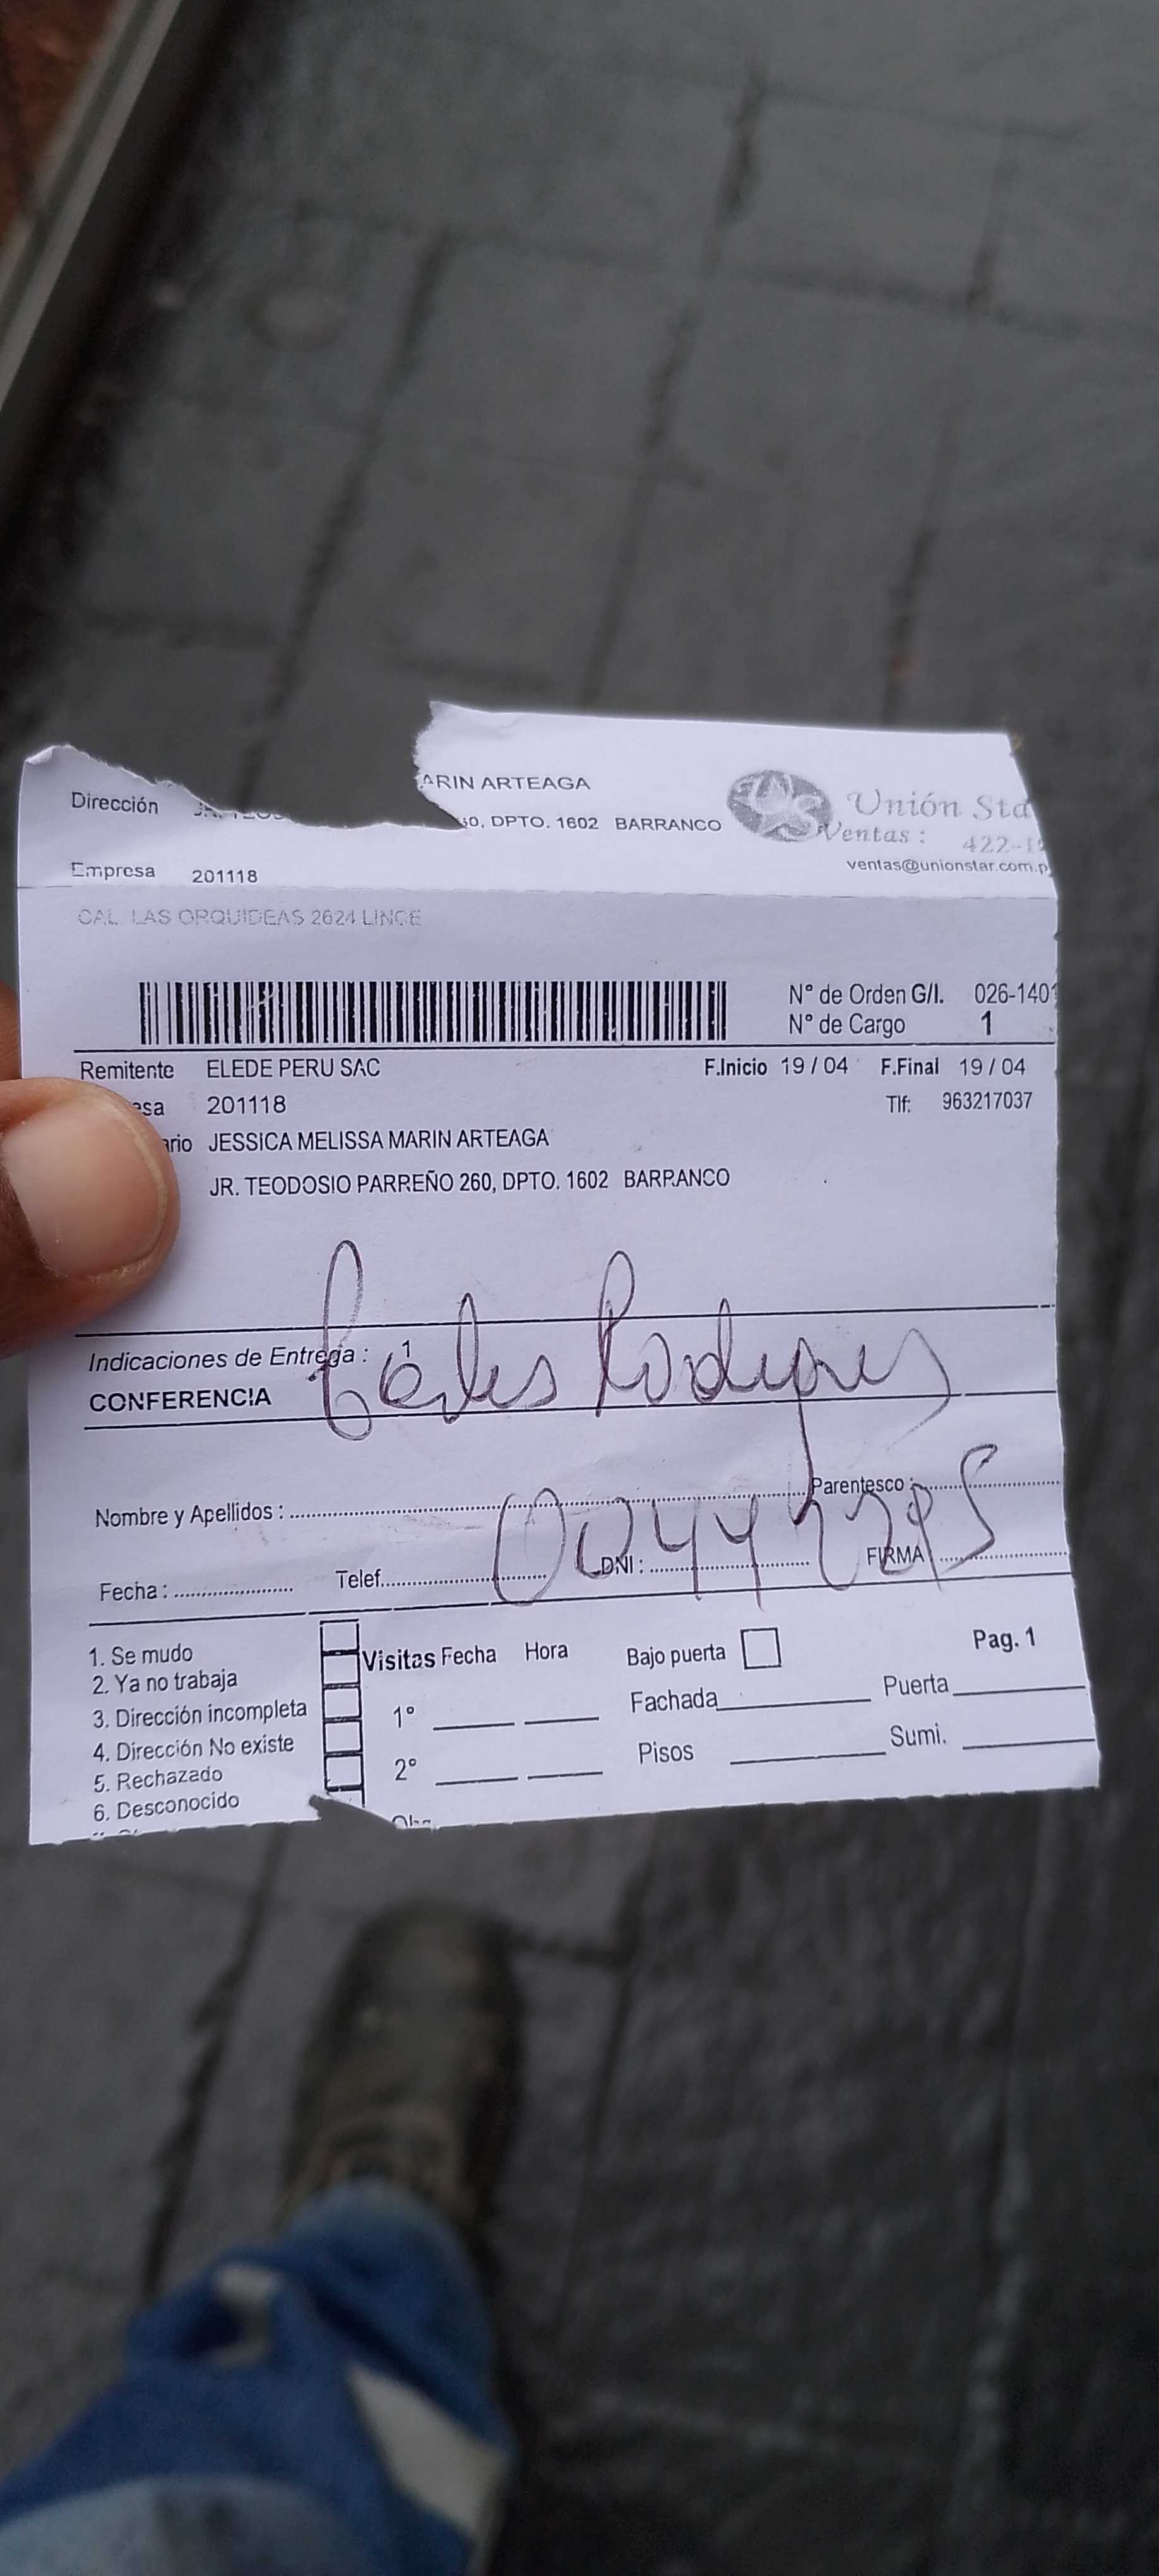 ARIN ARTEAGA
Dirección
DPTO. 1602 BARRANCO
Unión Sta
Ventas : 422-1
ventas@unionstar.com.p
Empresa 201118
CAL LAS ORQUIDEAS 2624 LINCE
N° de Orden G/I. 026-1401
N° de Cargo 1
Remitente ELEDE PERU SAC F.Inicio 19 / 04 F.Final 19 / 04
esa 201118 Tlf: 963217037
ario JESSICA MELISSA MARIN ARTEAGA
JR. TEODOSIO PARREÑO 260, DPTO. 1602 BARRANCO
Indicaciones de Entrega : 1
CONFERENCIA
Nombre y Apellidos : Parentesco :
Fecha : Telef. DNI : FIRMA
1. Se mudo
2. Ya no trabaja
3. Dirección incompleta
4. Dirección No existe
5. Rechazado
6. Desconocido
Visitas Fecha Hora
1°
2°
Bajo puerta
Fachada
Pisos
Pag. 1
Puerta
Sumi.